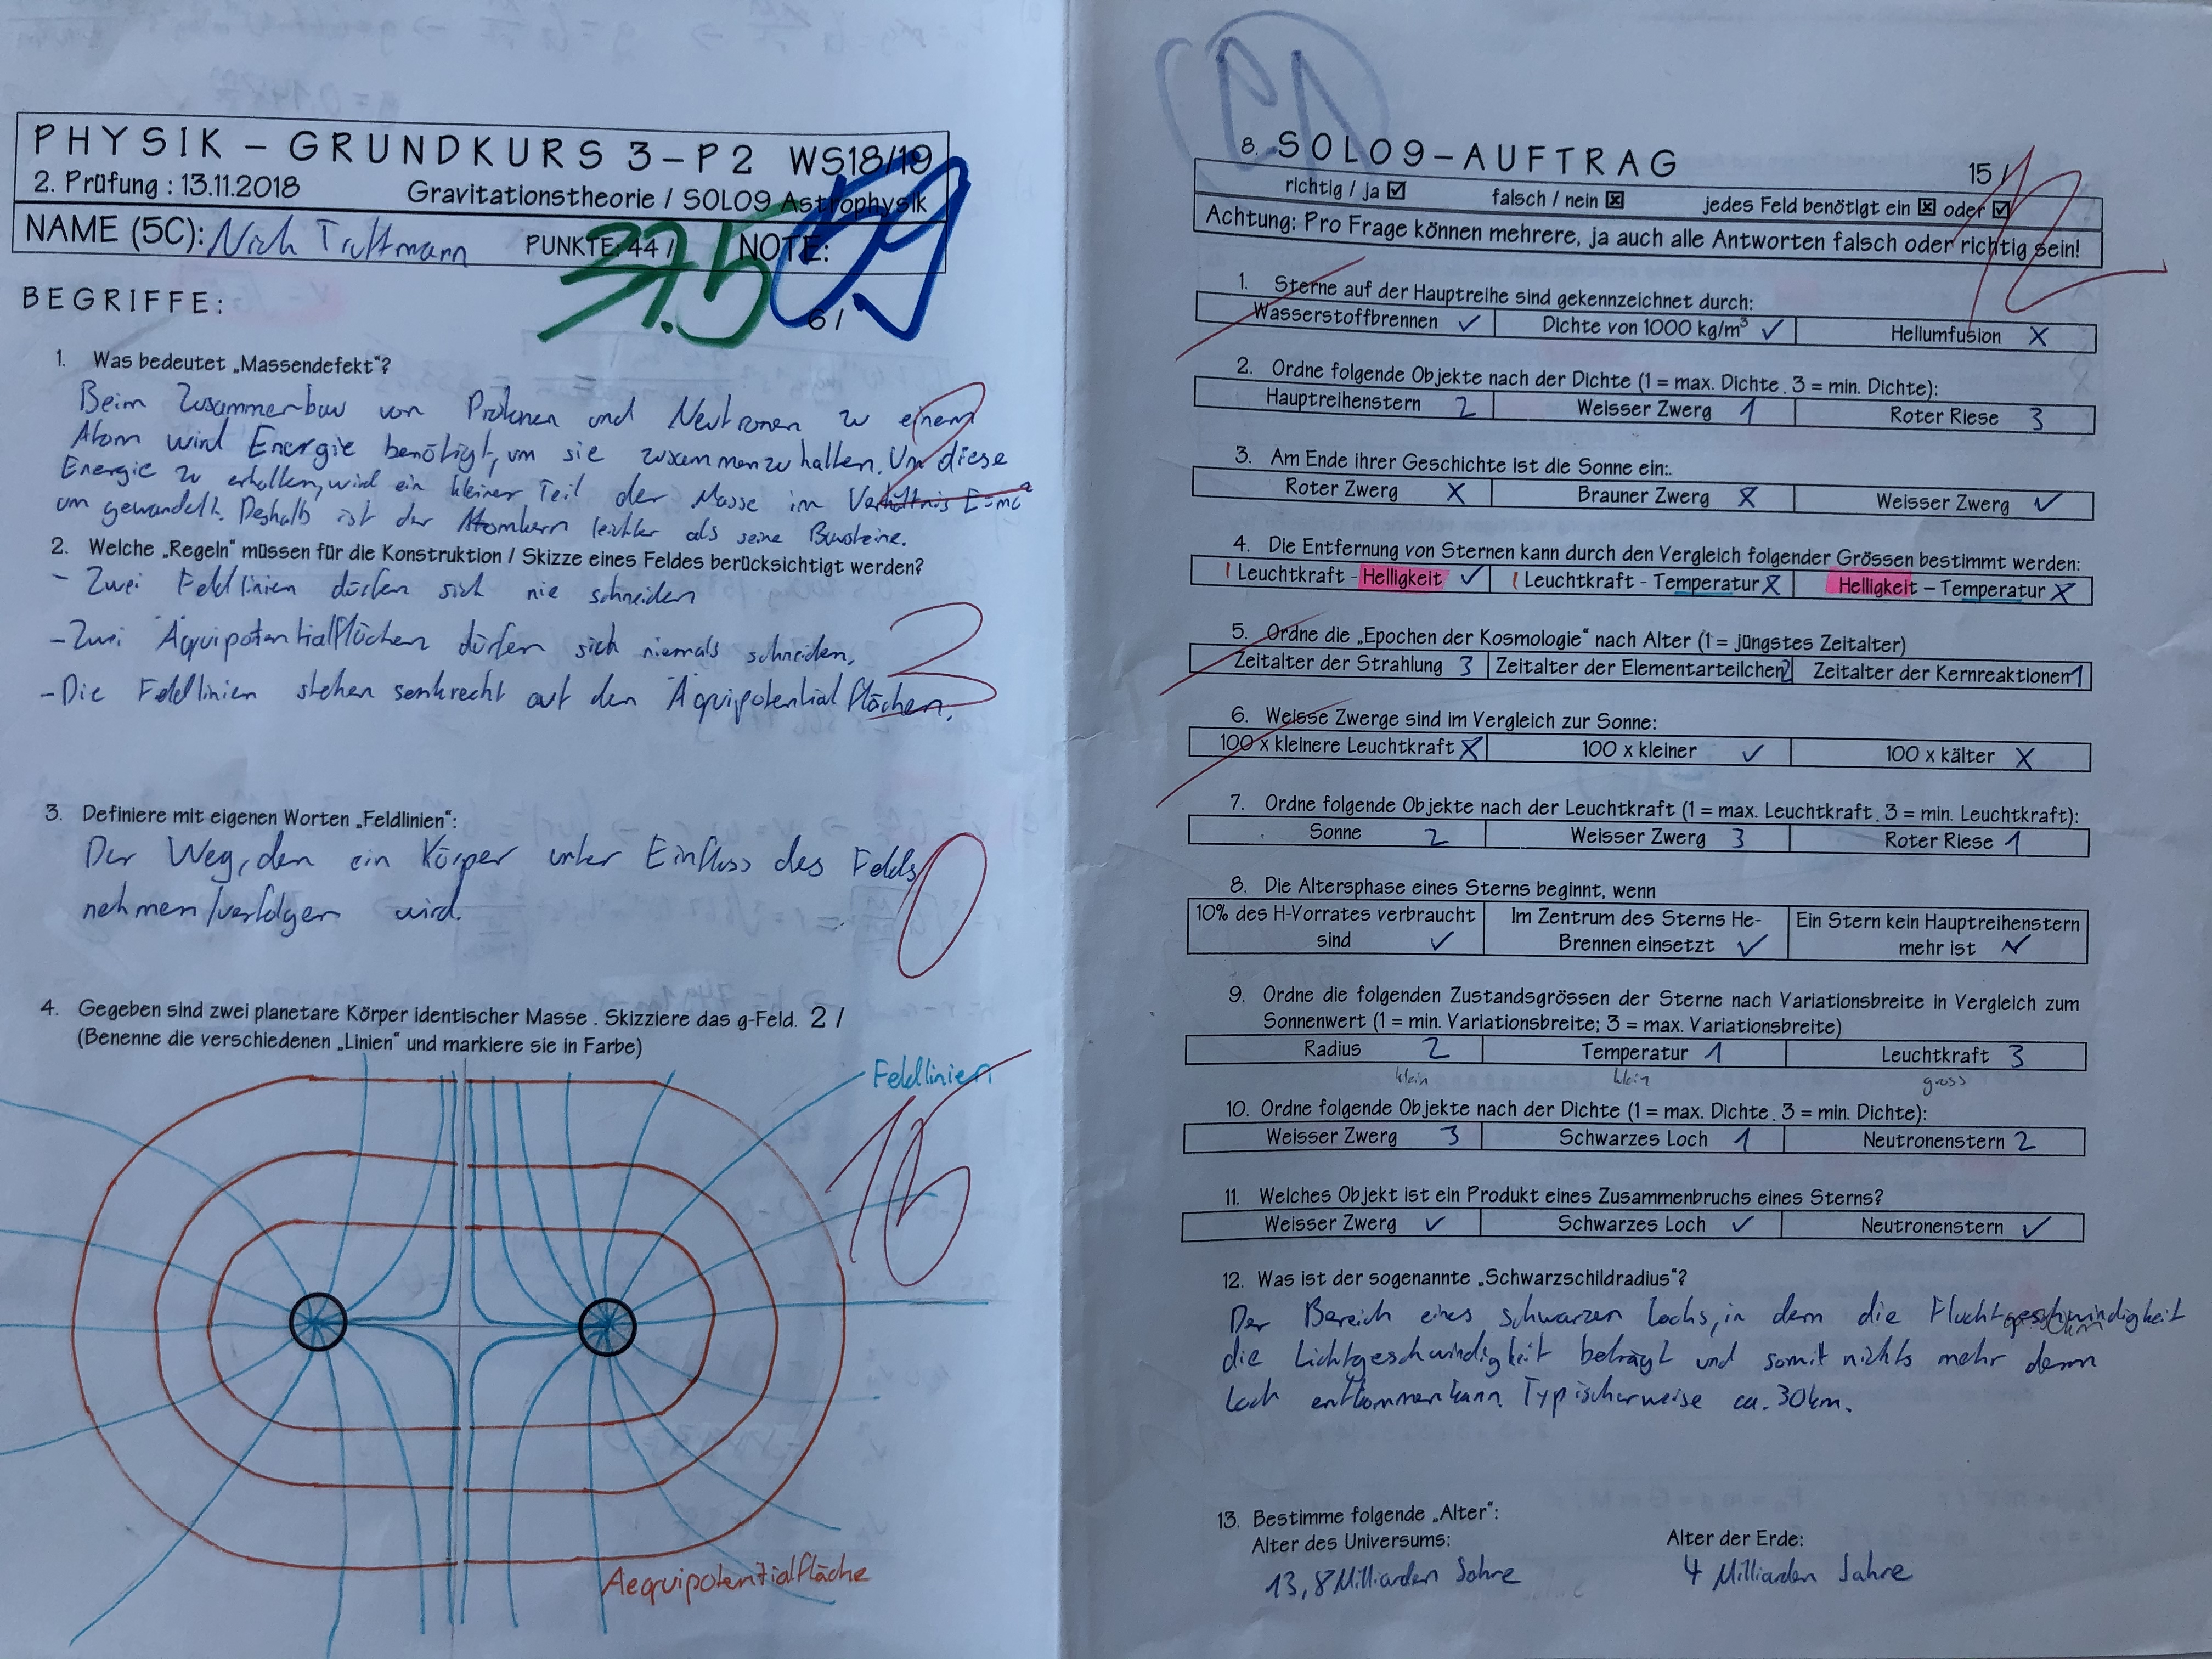 PHYSIK – GRUNDKURS 3–P2 WS18/19
2. Prüfung : 13.11.2018 Gravitationstheorie / SOL09 Astrophysik
NAME (5C): PUNKTE: 44 / 37.5 NOTE:
BEGRIFFE: 6 /
1. Was bedeutet „Massendefekt“?
Beim Zusammenbau von Protonen und Neutronen zu einem
Atom wird Energie benötigt, um sie zusammenzuhalten. Um diese
Energie zu erhalten, wird ein kleiner Teil der Masse im Verhältnis E=mc²
umgewandelt. Deshalb ist der Atomkern leichter als seine Bausteine.
2. Welche „Regeln“ müssen für die Konstruktion / Skizze eines Feldes berücksichtigt werden?
- Zwei Feldlinien dürfen sich nie schneiden
- Zwei Äquipotentialflächen dürfen sich niemals schneiden.
- Die Feldlinien stehen senkrecht auf den Äquipotentialflächen.
3
3. Definiere mit eigenen Worten „Feldlinien“:
Der Weg, den ein Körper unter Einfluss des Felds
nehmen/verfolgen wird.
0
4. Gegeben sind zwei planetare Körper identischer Masse . Skizziere das g-Feld. 2 /
(Benenne die verschiedenen „Linien“ und markiere sie in Farbe)
Feldlinien
Aequipotentialfläche
8. SOL09–AUFTRAG 15 / 12
richtig / ja ☑ falsch / nein ☒ jedes Feld benötigt ein ☒ oder ☑
Achtung: Pro Frage können mehrere, ja auch alle Antworten falsch oder richtig sein!
1. Sterne auf der Hauptreihe sind gekennzeichnet durch:
Wasserstoffbrennen ✓ Dichte von 1000 kg/m³ ✓ Heliumfusion X
2. Ordne folgende Objekte nach der Dichte (1 = max. Dichte . 3 = min. Dichte):
Hauptreihenstern 2 Weisser Zwerg 1 Roter Riese 3
3. Am Ende ihrer Geschichte ist die Sonne ein:.
Roter Zwerg X Brauner Zwerg X Weisser Zwerg ✓
4. Die Entfernung von Sternen kann durch den Vergleich folgender Grössen bestimmt werden:
Leuchtkraft - Helligkeit ✓ Leuchtkraft - Temperatur X Helligkeit – Temperatur X
5. Ordne die „Epochen der Kosmologie“ nach Alter (1 = jüngstes Zeitalter)
Zeitalter der Strahlung 3 Zeitalter der Elementarteilchen 2 Zeitalter der Kernreaktionen 1
6. Weisse Zwerge sind im Vergleich zur Sonne:
100 x kleinere Leuchtkraft X 100 x kleiner ✓ 100 x kälter X
7. Ordne folgende Objekte nach der Leuchtkraft (1 = max. Leuchtkraft . 3 = min. Leuchtkraft):
Sonne 2 Weisser Zwerg 3 Roter Riese 1
8. Die Altersphase eines Sterns beginnt, wenn
10% des H-Vorrates verbraucht Im Zentrum des Sterns He- Ein Stern kein Hauptreihenstern
sind ✓ Brennen einsetzt ✓ mehr ist ✓
9. Ordne die folgenden Zustandsgrössen der Sterne nach Variationsbreite in Vergleich zum
Sonnenwert (1 = min. Variationsbreite; 3 = max. Variationsbreite)
Radius 2 Temperatur 1 Leuchtkraft 3
klein klein gross
10. Ordne folgende Objekte nach der Dichte (1 = max. Dichte . 3 = min. Dichte):
Weisser Zwerg 3 Schwarzes Loch 1 Neutronenstern 2
11. Welches Objekt ist ein Produkt eines Zusammenbruchs eines Sterns?
Weisser Zwerg ✓ Schwarzes Loch ✓ Neutronenstern ✓
12. Was ist der sogenannte „Schwarzschildradius“?
Der Bereich eines schwarzen Lochs, in dem die Fluchtgeschwindigkeit
die Lichtgeschwindigkeit beträgt und somit nichts mehr dem
Loch entkommen kann. Typischerweise ca. 30km.
13. Bestimme folgende „Alter“:
Alter des Universums: Alter der Erde:
13,8 Milliarden Jahre 4 Milliarden Jahre